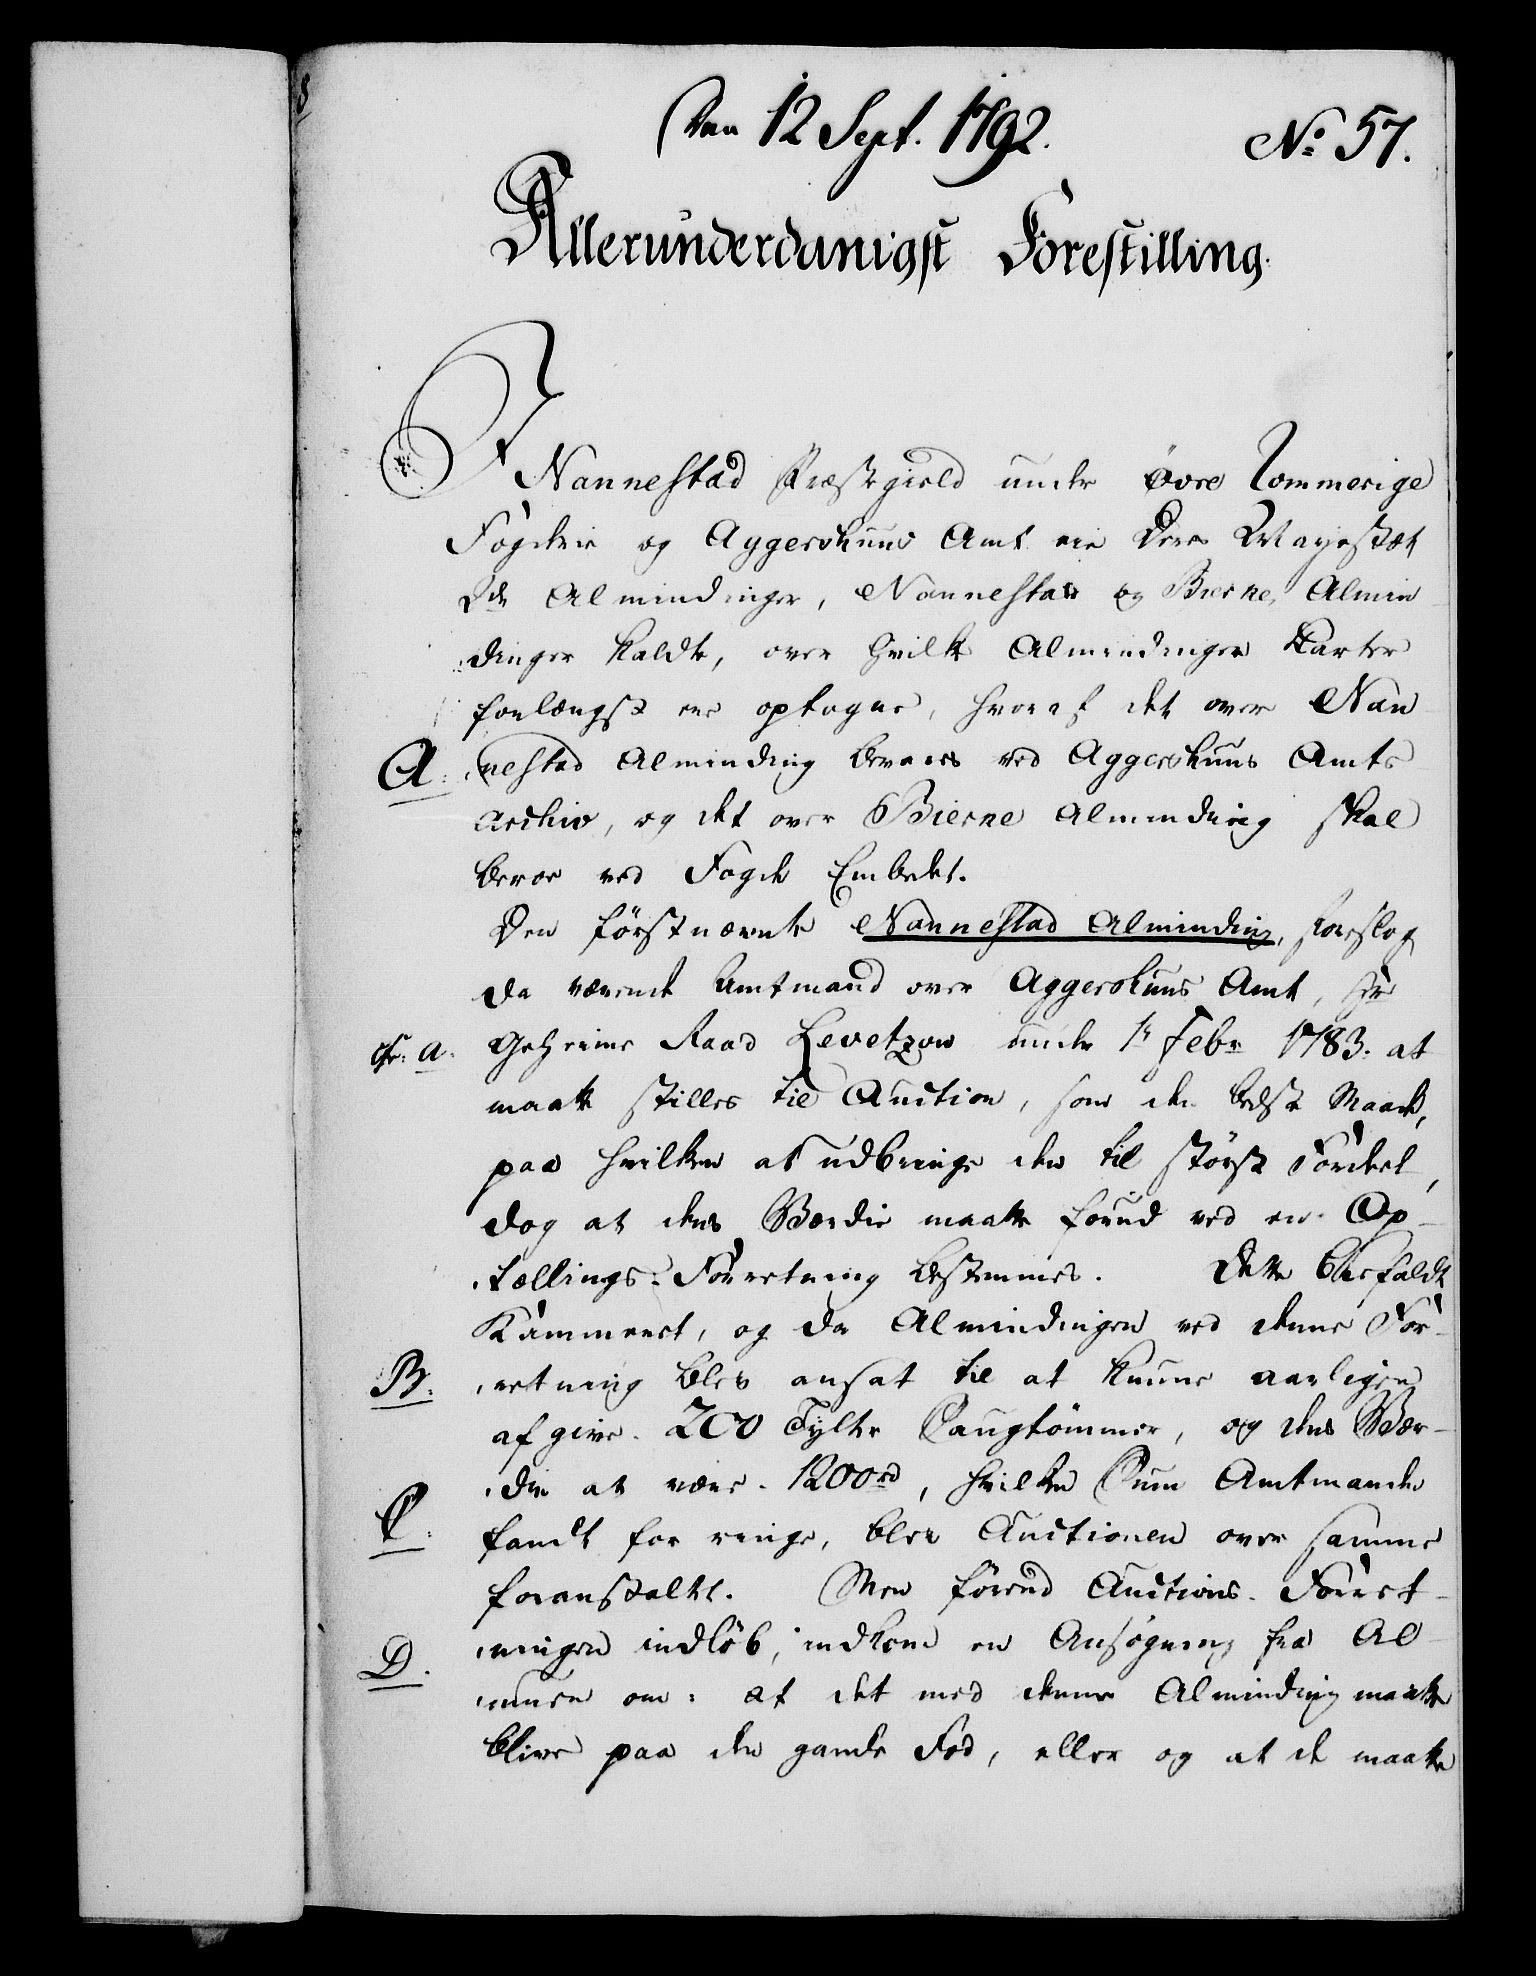 Den 12 Sept. 1792.
No 57.
Allerunderdanigst Forestilling.
I Nannestad Præstegield under Øvre Rommerige
Fogderie og Aggershuus Amt eie Deres Majestæt
Almindinger, Nannestad og Bierke Almin-
dinger kaldte, over hvilke Almindinger Karter
forlængst ere optagne, hvoraf det over Nan-
A. nestad Alminding bevares ved Aggershuus Amts
Archiv, og det over Bierke Alminding skal
beroe ved Fogde Embedet.
Den førstnævnte Nannestad Alminding, foreslog
da værende Amtmand over Aggershuus Amt, Hr
cfr: a. Geheime Raad Levetzow under 1e Febr 1783. at
maatte stilles til Auction, som den bedste Maade,
paa hvilken at udbringe den til største Fordeel,
dog at dens Værdie maatte forud ved en Op-
tællings-Forretning bestemmes. Dette bifaldt
Kammeret, og da Almindingen ved denne For-
B. retning blev ansat til at kunne aarligen
afgive 200 Tylter Saugtømmer, og dens Vær-
die at være 1200 rd, hvilken Sum Amtmanden
C. fandt for ringe, blev Auctionen over samme
foranstaltet. Men førend Auctions-Forret-
ningen indløb, indkom en Ansøgning fra Al-
D. muen om: at det med denne Alminding maatte
blive paa den gamle Fod, eller og at de maatte